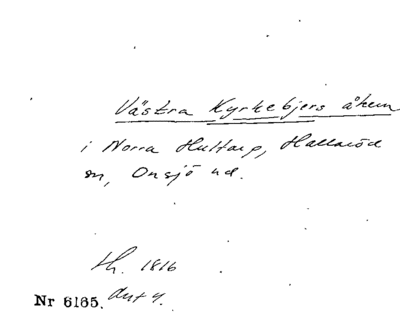 Västra Kyrkebjers åkern
i Norra Hultarp, Hallaröd
sn, Onsjö hd.
th. 1816
Nr 6165. akt 4.